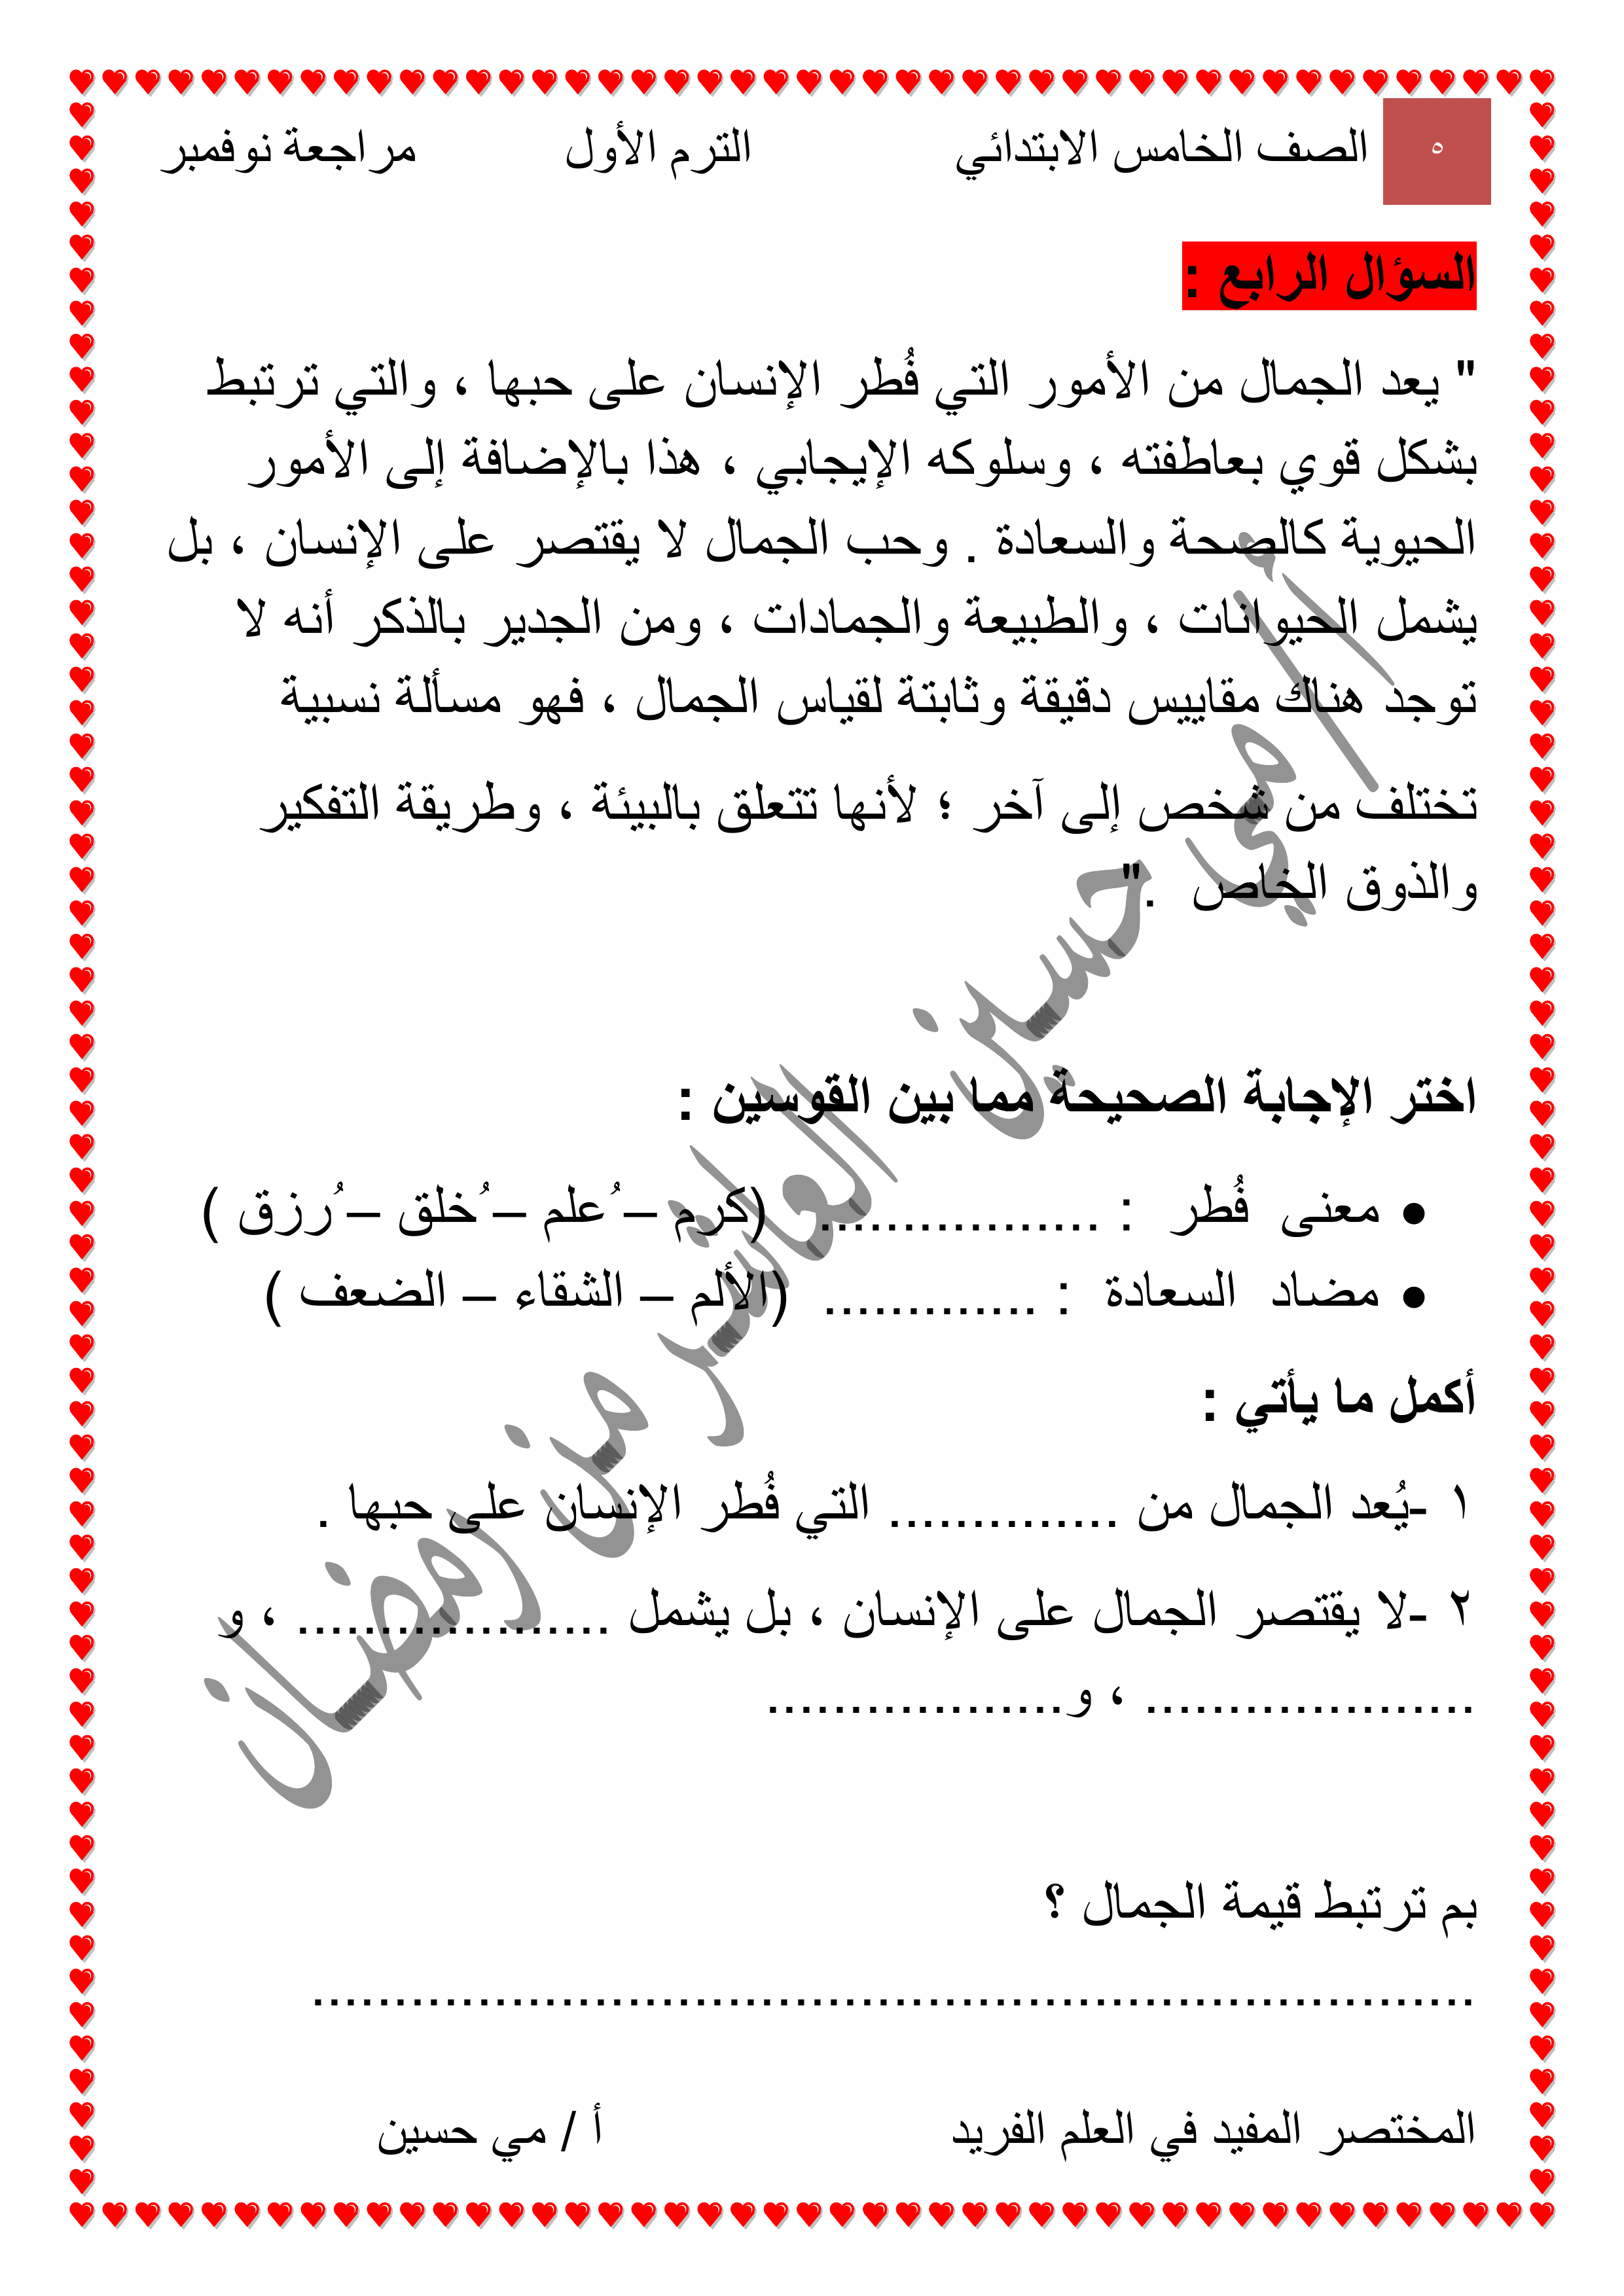 ٥
الصف الخامس الابتدائي الترم الأول مراجعة نوفمبر
السؤال الرابع :
" يعد الجمال من الأمور التي فُطر الإنسان على حبها ، والتي ترتبط
بشكل قوي بعاطفته ، وسلوكه الإيجابي ، هذا بالإضافة إلى الأمور
الحيوية كالصحة والسعادة . وحب الجمال لا يقتصر على الإنسان ، بل
يشمل الحيوانات ، والطبيعة والجمادات ، ومن الجدير بالذكر أنه لا
توجد هناك مقاييس دقيقة وثابتة لقياس الجمال ، فهو مسألة نسبية
تختلف من شخص إلى آخر ؛ لأنها تتعلق بالبيئة ، وطريقة التفكير
والذوق الخاص ."
اختر الإجابة الصحيحة مما بين القوسين :
• معنى فُطر : ................. (كرم – ُعلم – ُخلق – ُرزق )
• مضاد السعادة : ............. (الألم – الشقاء – الضعف )
أكمل ما يأتي :
١ -يُعد الجمال من .............. التي فُطر الإنسان على حبها .
٢ -لا يقتصر الجمال على الإنسان ، بل يشمل ................... ، و
.................... ، و..................
بم ترتبط قيمة الجمال ؟
......................................................................
المختصر المفيد في العلم الفريد أ / مي حسين
أ/مي حسين العاشر من رمضان